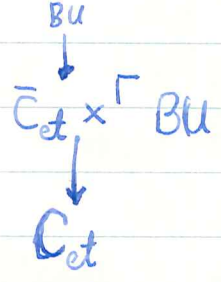 BU
C̄et × Γ BU
Cet